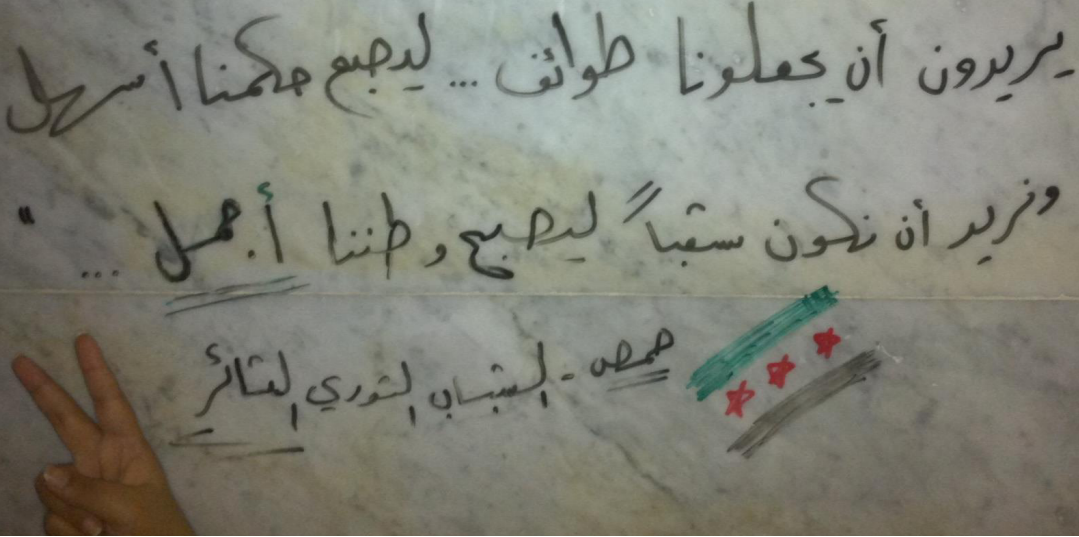 يريدون أن يجعلونا طوائف ... ليصبح حكمنا أسهل
ونريد أن نكون شعباً ليصبح وطننا أجمل ... "
حمص - الشباب الثوري الثائر